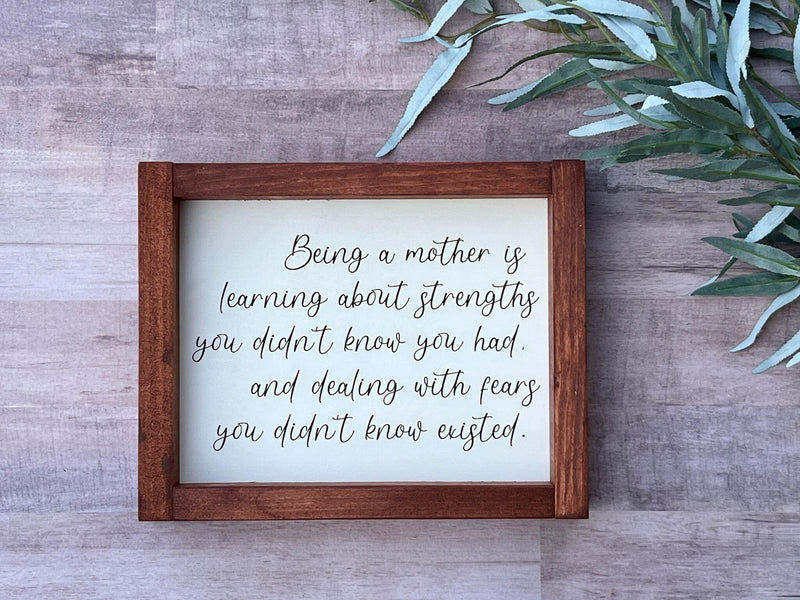 Being a mother is
learning about strengths
you didn't know you had.
and dealing with fears
you didn't know existed.